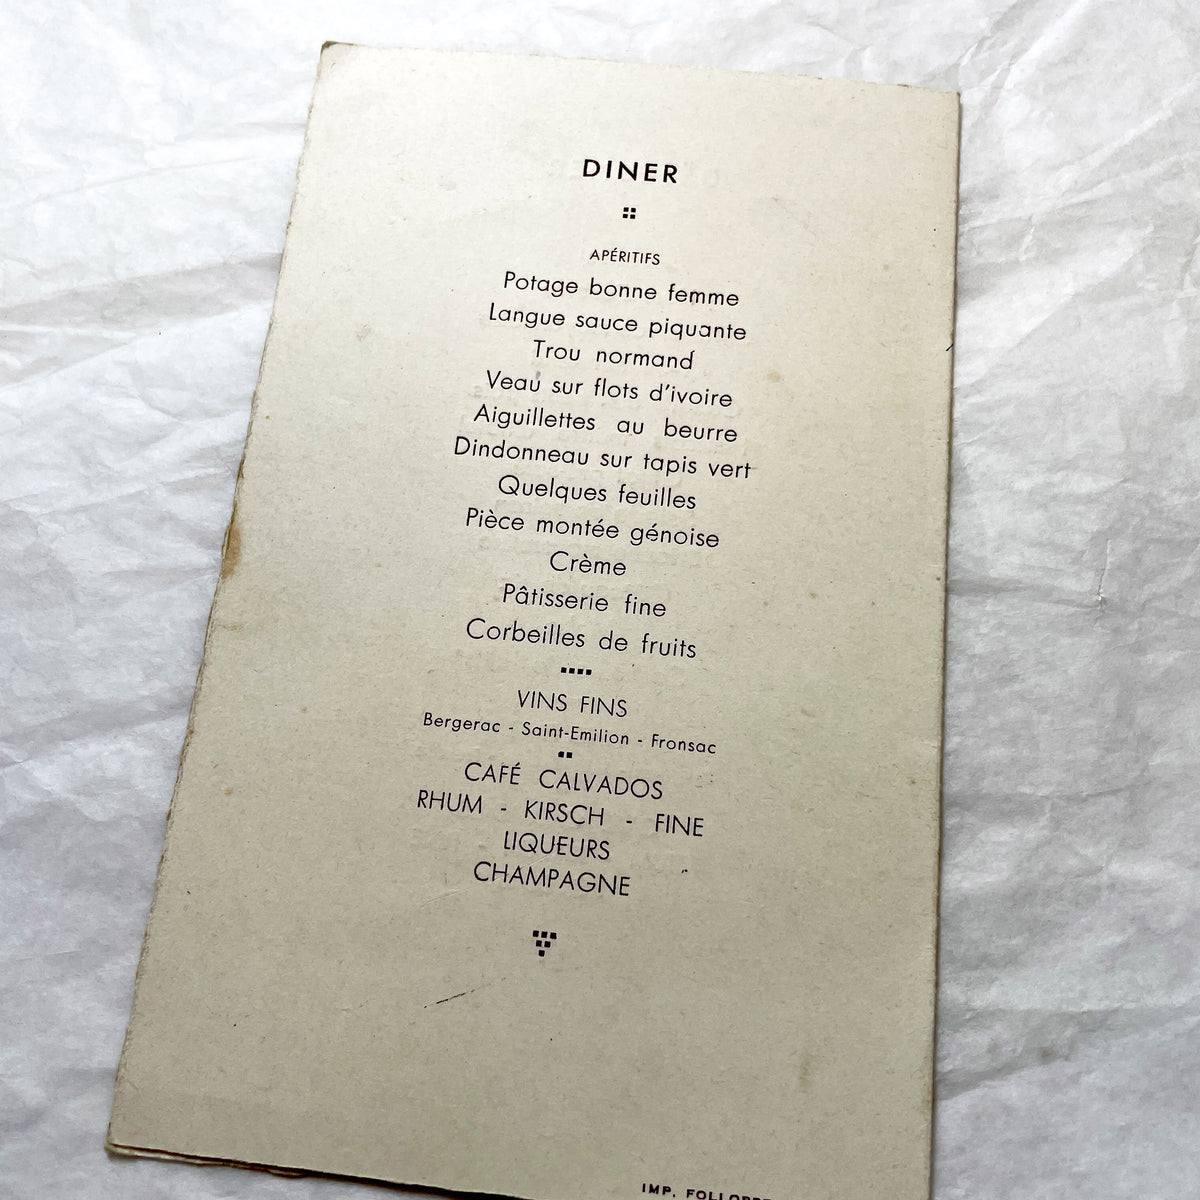 DINER
APÉRITIFS
Potage bonne femme
Langue sauce piquante
Trou normand
Veau sur flots d'ivoire
Aiguillettes au beurre
Dindonneau sur tapis vert
Quelques feuilles
Pièce montée génoise
Crème
Pâtisserie fine
Corbeilles de fruits
VINS FINS
Bergerac - Saint-Emilion - Fronsac
CAFÉ CALVADOS
RHUM - KIRSCH - FINE
LIQUEURS
CHAMPAGNE
IMP.